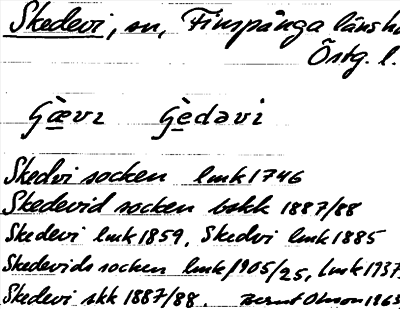 Skedevi, sn, Finspånga länsh
Östg. l.
Gævɪ Gedəvi
Skedvi socken lmk 1746
Skedevid socken bskk 1887/88
Skedevi lmk 1859, Skedvi lmk 1885
Skedevids socken lmk 1905/25, lmk 1937
Skedevi skk 1887/88. Bernt Olsson 1963